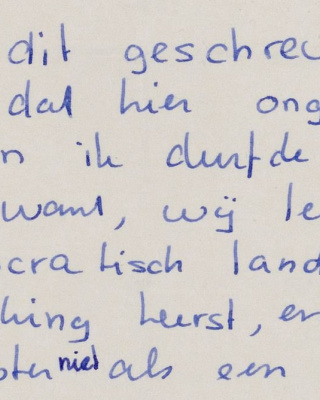 dit geschrev
dat hier ong
n ik durfde
want, wij le
ocratisch land
hing heerst, en
oten niet als een